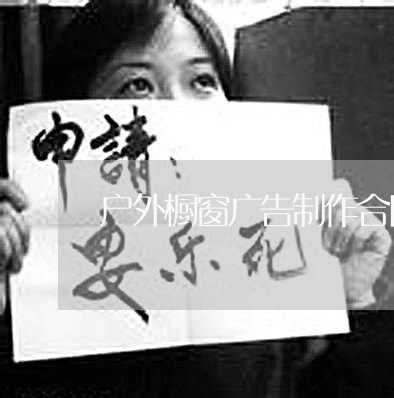 申請：
户外橱窗广告制作合
安乐死